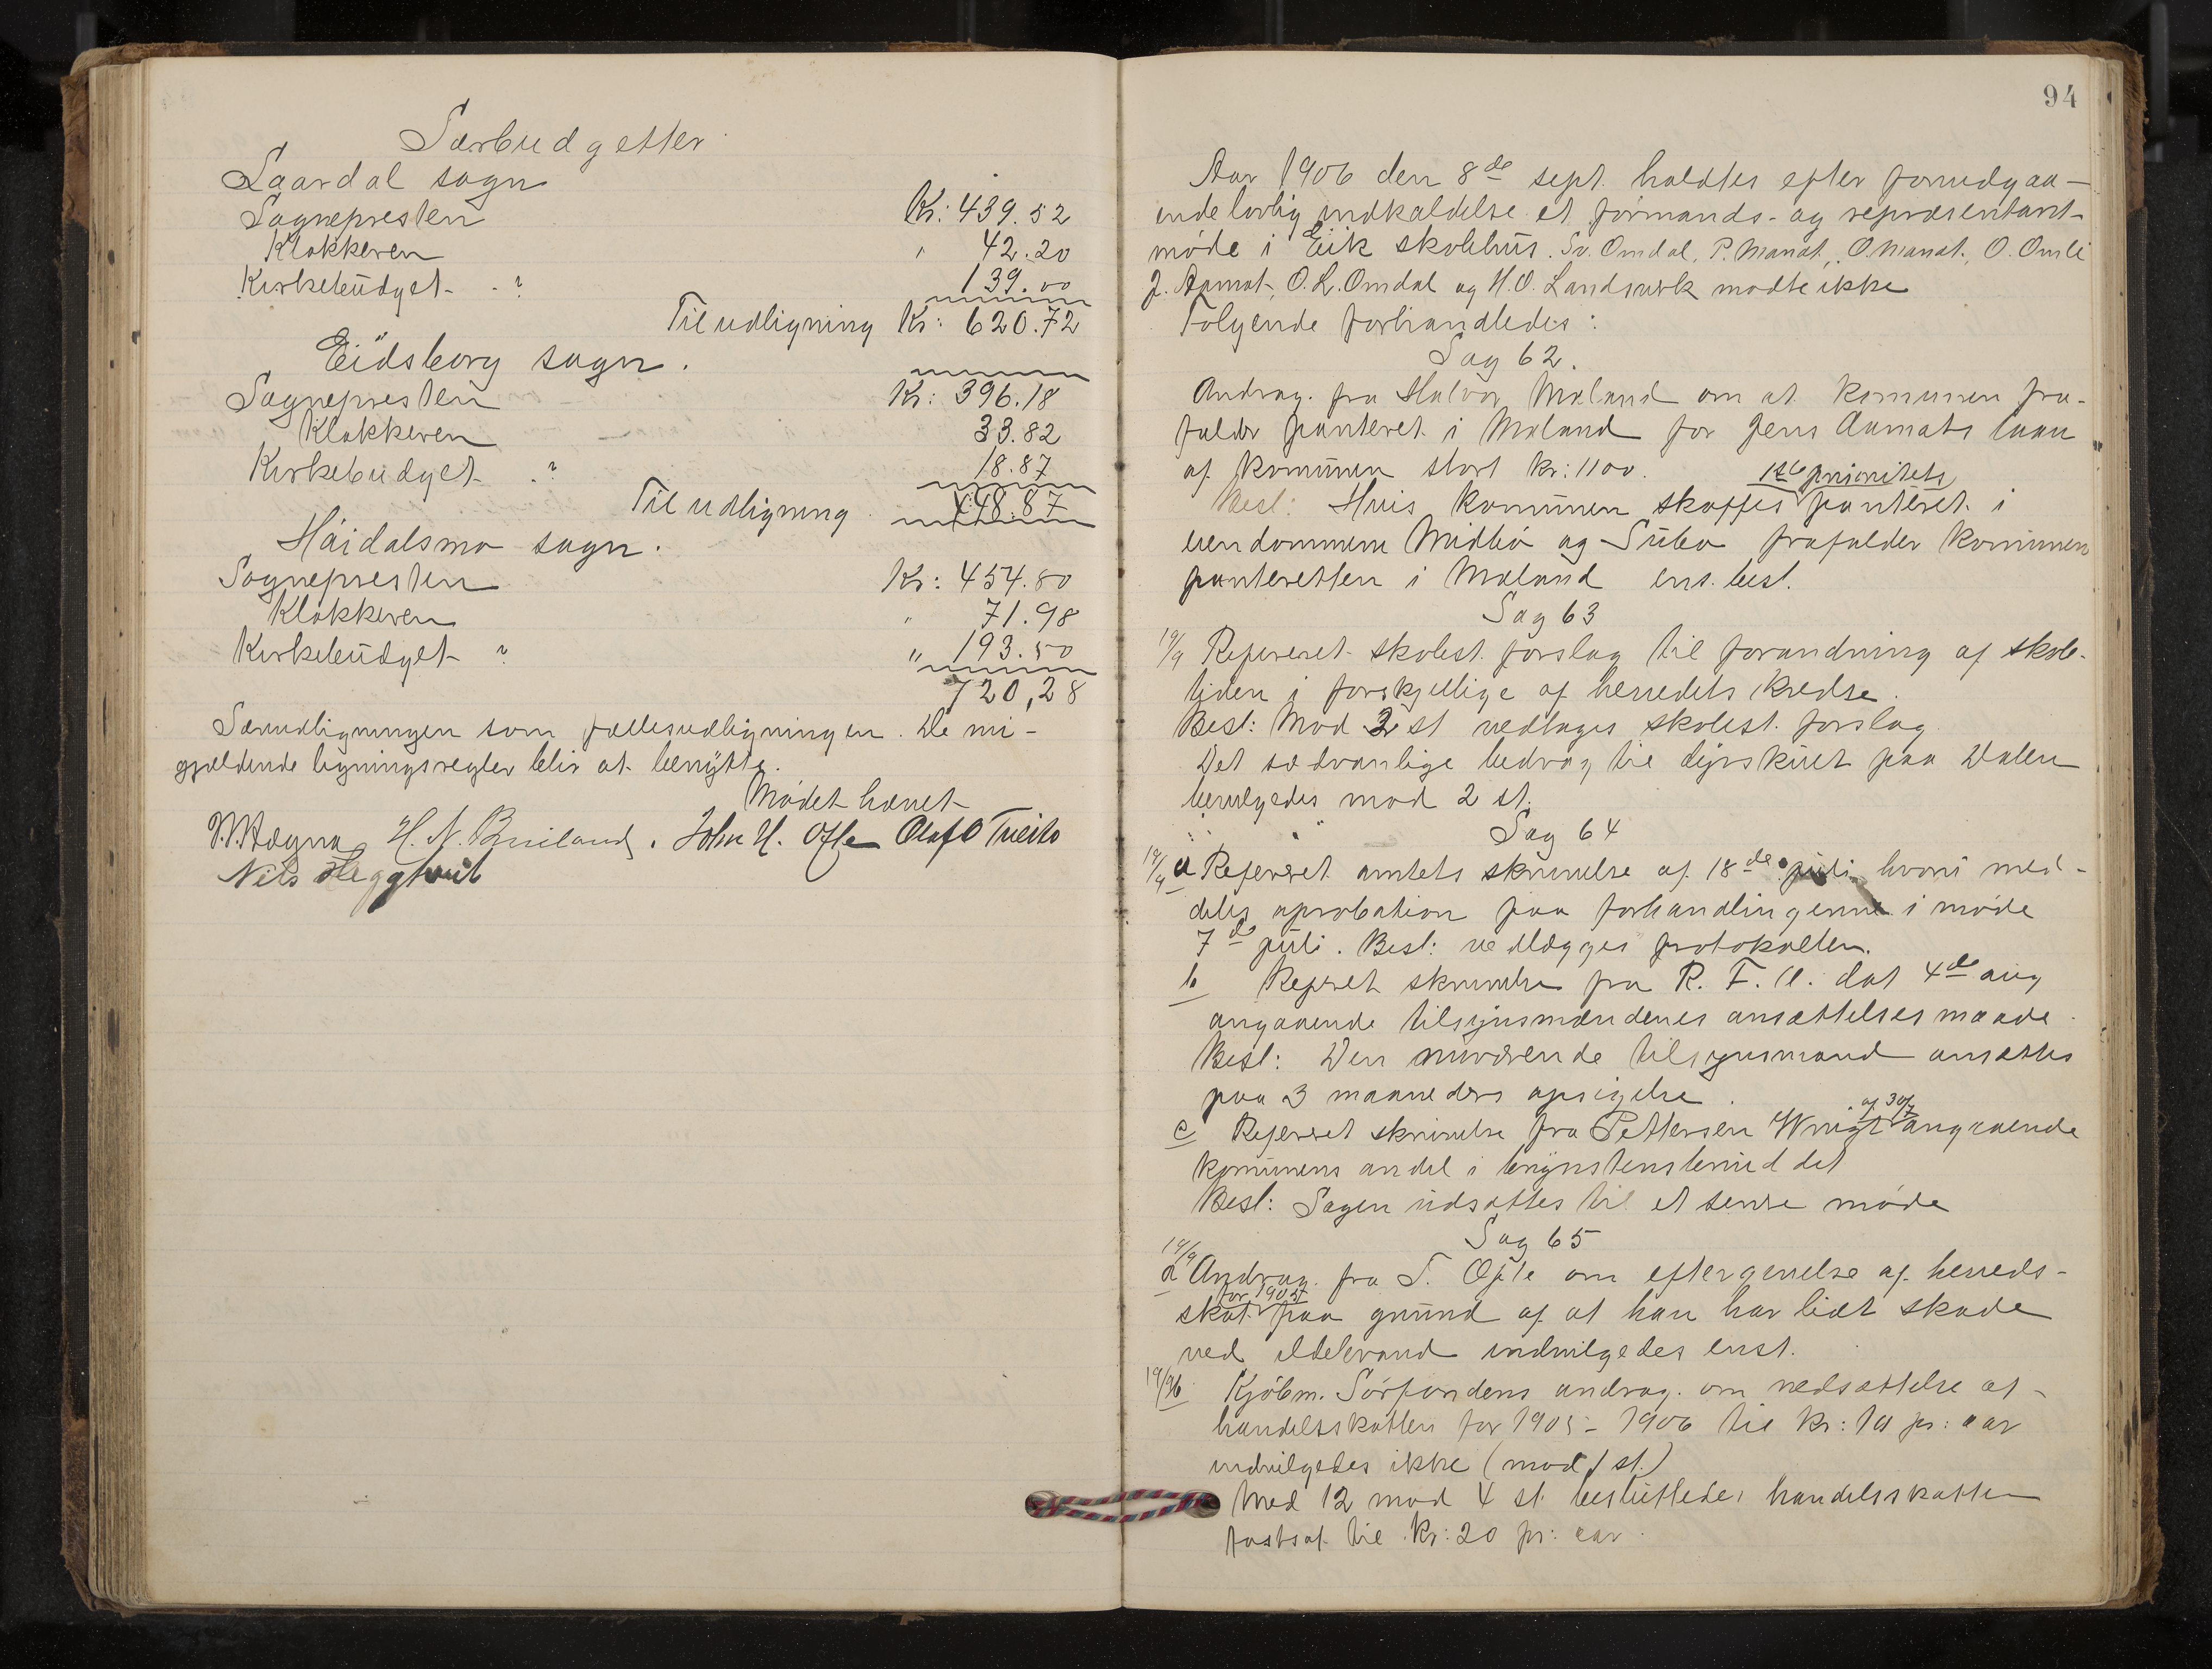 Særbudgetter
Laardal sogn
Sognepresten Kr: 439.52
Klokkeren " 42.20
Kirkebudget - " 139.00
Til udligning Kr: 620.72
Eidsborg sogn.
Sognepresten Kr: 396.18
Klokkeren 33.82
Kirkebudget " 18.87
Til udligning 448.87
Høidalsmo sogn.
Sognepresten Kr: 454.80
Klokkeren " 71.98
Kirkebudget " " 193.50
720,28
Særudligningen som fællesudligningen. De nu-
gjældende ligningsregler blir at benytte.
Mødet hævet
H. N. Bruiland. John H. Ofte Olaf O Tveito
Nils Heggtveit
94
Aar 1906 den 8de sept. holdtes efter forudgaa-
ende lovlig indkaldelse et formands- og repræsentant-
møde i Eik skolehus. Sv. Omdal, P. Manat., O. Manat., O. Omli
J. Aamot, O. L. Omdal og H. O. Landsverk mødte ikke
Følgende forhandledes:
Sag 62.
Andrag. fra Halvor Mæland om at kommunen fra-
falder panteret i Mæland for Jens Aamots laan
af kommunen stort kr: 1100.
1ste prioritets
Besl: Hvis kommunen skaffes panteret i
eiendommene Midbø og frafalder kommunen
panteretten i Mæland ens. besl.
Sag 63
19/9 Refereret skolest. forslag til forandring af skole-
tiden i forskjellige af herredets kredse.
Besl: Mod 2 st vedtages skolest. forslag.
Det sædvanlige bedrag til dyrskuet paa Dalen
bevilgedes mod 2 st.
Sag 64
19/9 a Refereret amtets skrivelse af 18de juli hvori med-
deles aprobation paa forhandlingerne i møde
7de juli. Besl: vedlægges protokollen.
b Referet skrivelse fra R. F. A. dat 4de aug
angaaende tilsynsmændenes ansættelsesmaade.
Besl: Den nuværende tilsynsmand ansættes
paa 3 maaneders opsigelse.
af 30/7
c Refereret skrivelse fra Pettersen Wrigt angaaende
kommunens andel i brynstensbruddet
Besl: Sagen udsættes til et senere møde
Sag 65
19/9
a Andrag. fra S. Ofte om eftergivelse af herreds-
for 1905
skat paa grund af at han har lidt skade
ved ildebrand indvilgedes enst.
19/9 b Kjøbm. Sørfondens andrag. om nedsættelse af
handelsskatten for 1905-1906 til kr: 10 pr: aar
indvilgedes ikke (mod 1 st.)
Med 12 mod 4 st. besluttedes handelsskatten
fastsat til kr: 20 pr: aar.